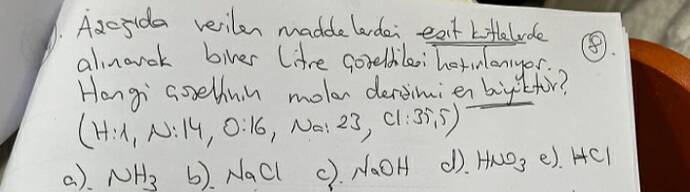 Aşağıda verilen maddelerden eşit kütlelerde (8).
alınarak birer litre çözeltileri hazırlanıyor.
Hangi çözeltinin molar derişimi en büyüktür?
(H:1, N:14, O:16, Na: 23, Cl:35,5)
a). NH3 b). NaCl c). NaOH d). HNO3 e). HCl